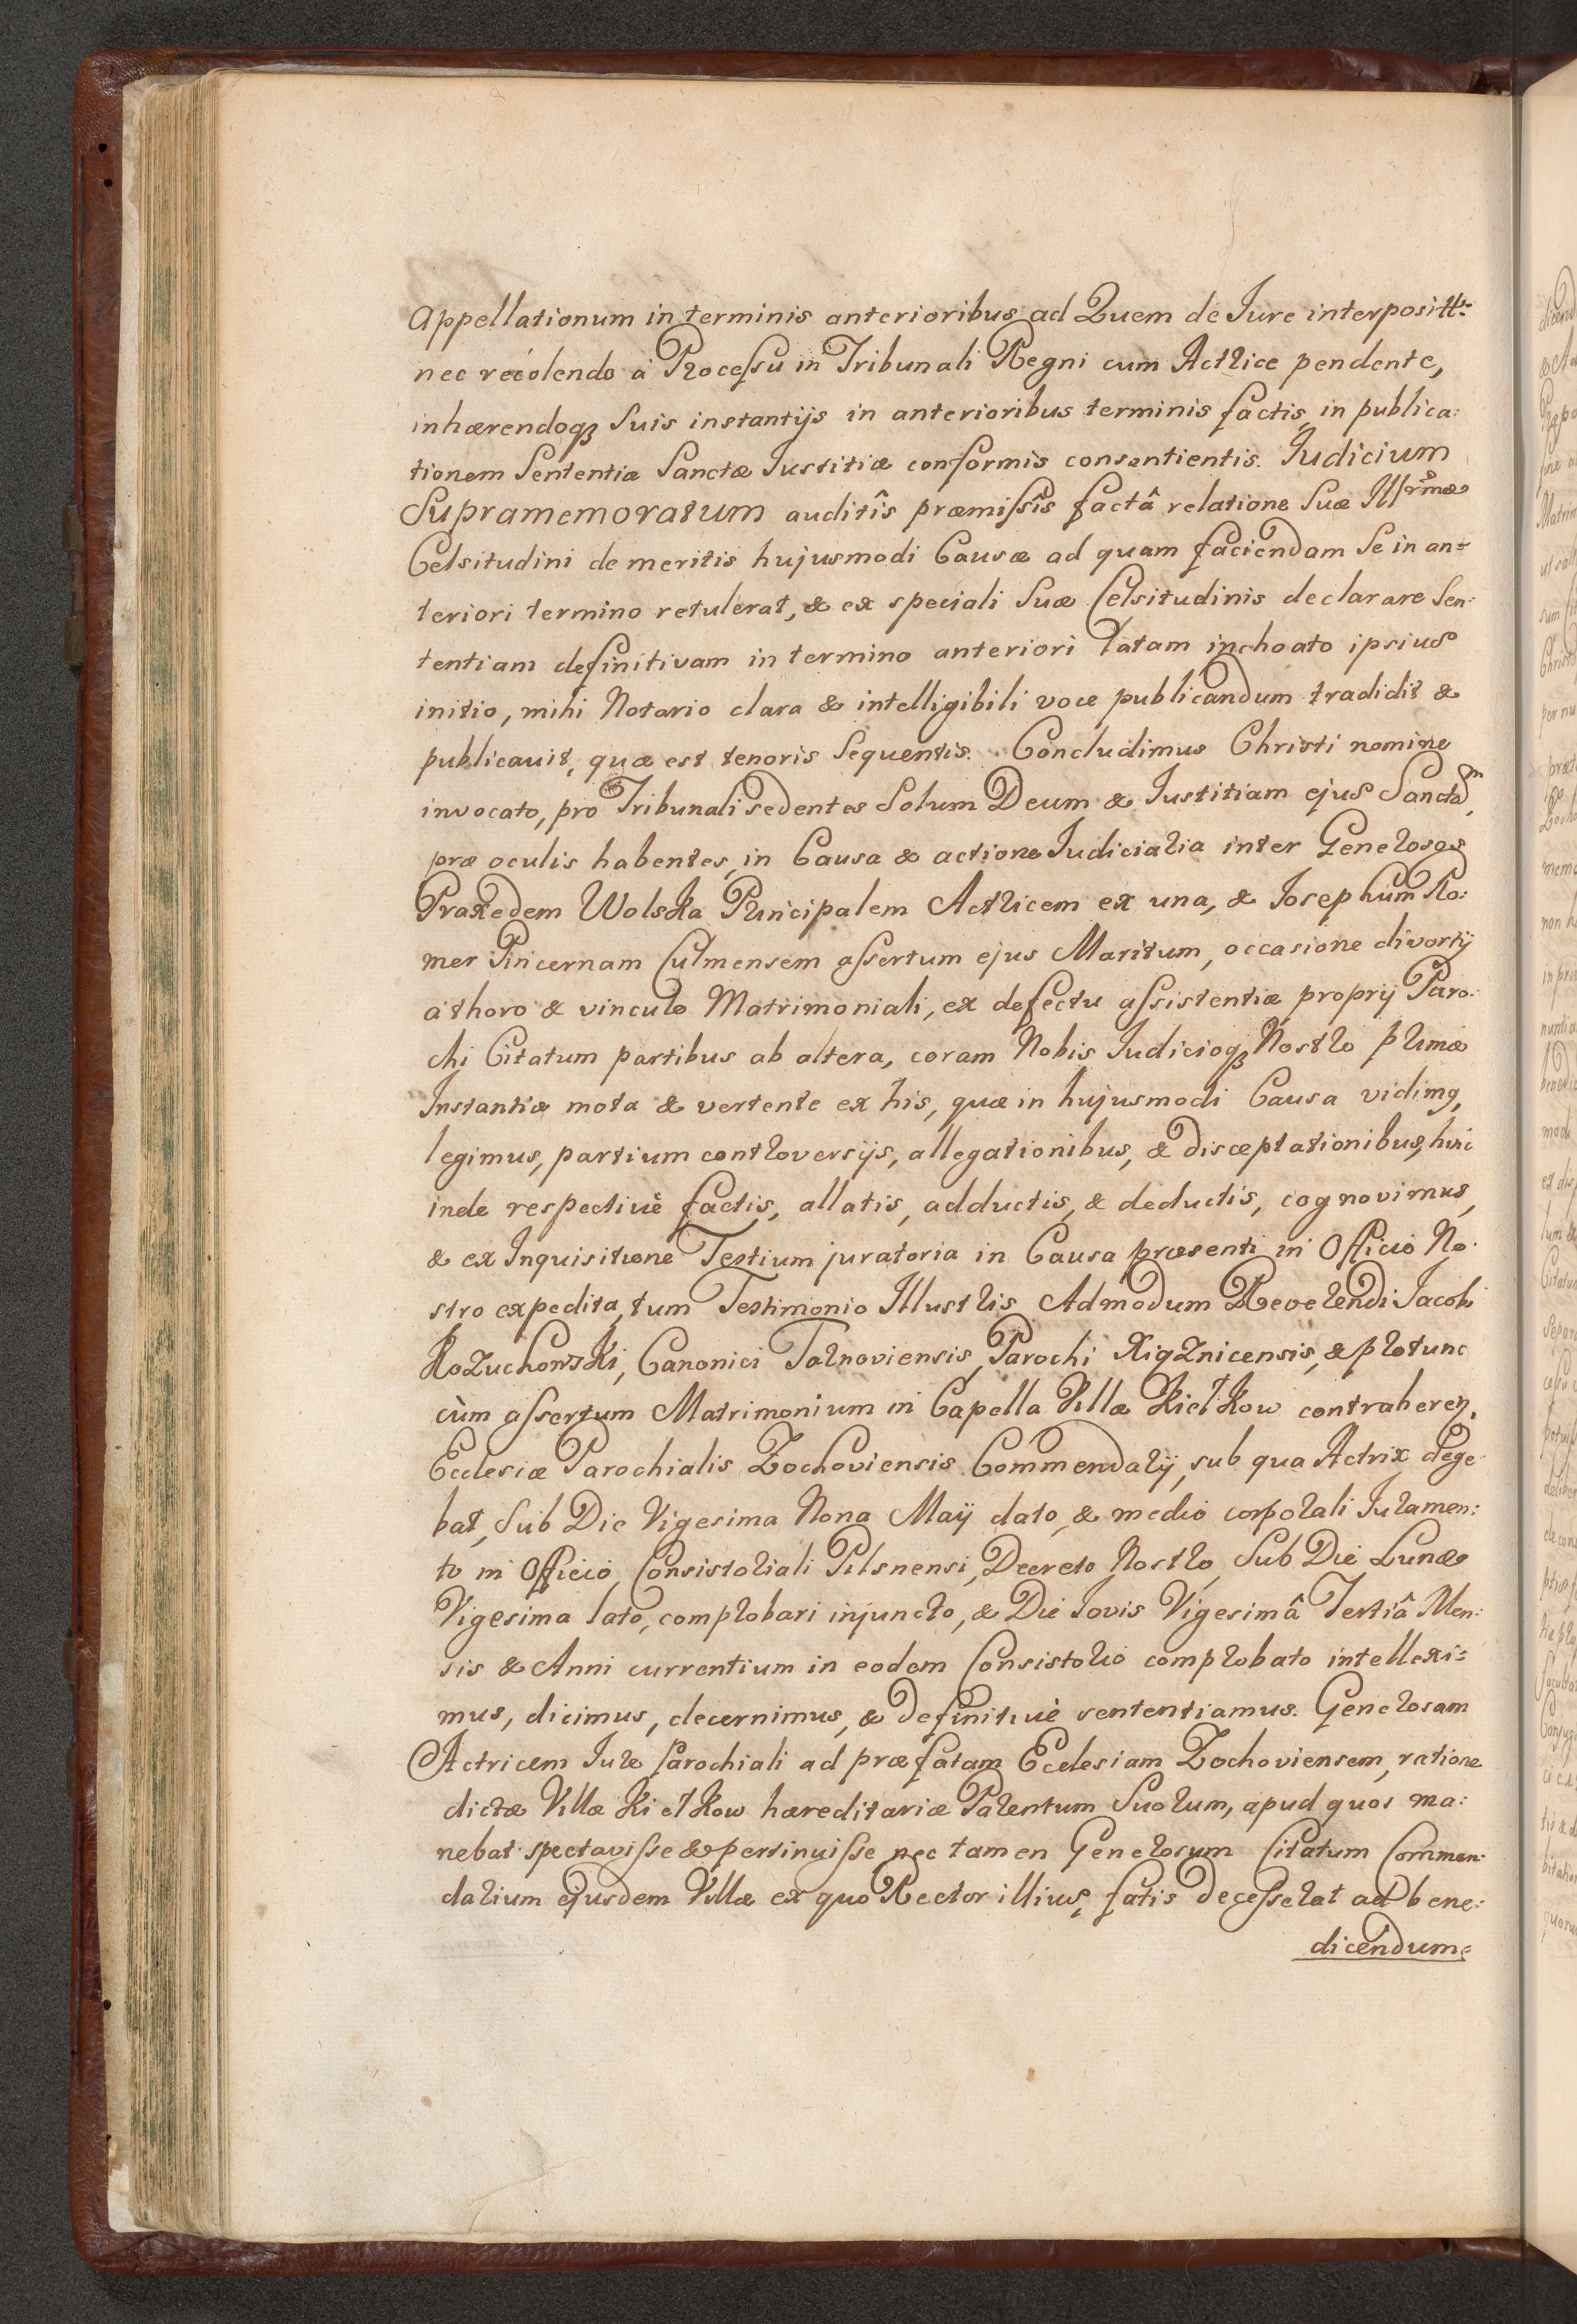 Appellationum in terminis anterioribus ad Quem de Iure interposittr:
nec recolendo à Processu in Tribunali Regni cum Actrice pendente,
inhærendoqȝ Suis instantijs in anterioribus terminis factis, in publica:
tionem Sententiæ Sanctæ Iustitiæ conformis consentientis. Iudicium
Supramemoratum auditîs præmissîs factâ relatione Suæ Illrmæ
Celsitudini de meritis hujusmodi Causæ ad quam faciendam Se in an=
teriori termino retulerat, & ex speciali Suæ Celsitudinis declarare Sen:
tentiam definitivam in termino anteriori latam inchoato ipsius
initio, mihi Notario clara & intelligibili voce publicandum tradidit &
publicauit, quæ est tenoris Sequentis. Concludimus Christi nomine
invocato, pro Tribunali sedentes Solum Deum & Iustitiam ejus Sanctam,
præ oculis habentes, in Causa & actione Iudiciaria inter Generosos
Praxedem Wolska Principalem Actricem ex una, & Iosephum Ro:
mer Pincernam Culmensem assertum ejus Maritum, occasione divortij
à thoro & vinculo Matrimoniali, ex defectu assistentiæ proprij Paro:
chi Citatum partibus ab altera, coram Nobis Iudicioqȝ Nostro primæ
Instantiæ mota & vertente ex his, quæ in hujusmodi Causa vidimg,
legimus, partium controversijs, allegationibus, & disceptationibus, hinc
inde respectivè factis, allatis, adductis, & deductis, cognovimus,
& ex Inquisitione Testium juratoria in Causa præsenti in Officio No:
stro expedita, tum Testimonio Illustris Admodum Reverendi Iacobi
Kozuchowski, Canonici Tarnoviensis, Parochi Xiąznicensis, & protunc
cùm assertum Matrimonium in Capella Villæ Kiełkow contraheret,
Ecclesiæ Parochialis Zochoviensis Commendarij, sub qua Actrix dege
bat, Sub Die Vigesima Nona Maij dato, & medio corporali Iuramen:
to in Officio Consistoriali Pilsnensi, Decreto Nostro, Sub Die Lunæ
Vigesima lato, comprobari injuncto, & Die Iovis Vigesimâ Tertiâ Men:
sis & Anni currentium in eodem Consistorio comprobato intellexi=
mus, dicimus, decernimus, & definitivè sententiamus. Generosam
Actricem Iure Parochiali ad præfatam Ecclesiam Zochoviensem, ratione
dictæ Villæ Kiełkow hæreditariæ Parentum Suorum, apud quos ma:
nebat spectavisse & pertinuisse, nec tamen Generosum Citatum Commen:
darium ejusdem Villæ ex quo Rector illius, fatis decesserat ad bene:
dicendum